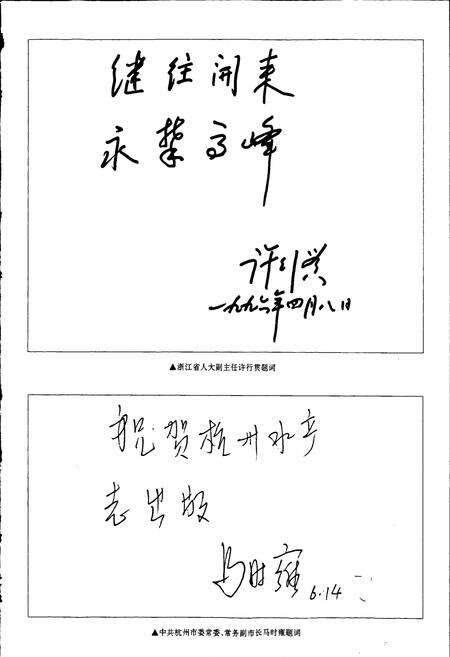 继往開来
永攀高峰
许行贯
一九九六年四月八日
▲浙江省人大副主任许行贯题词
祝贺杭州水产
志出版
马时雍
6.14
▲中共杭州市委常委、常务副市长马时雍题词